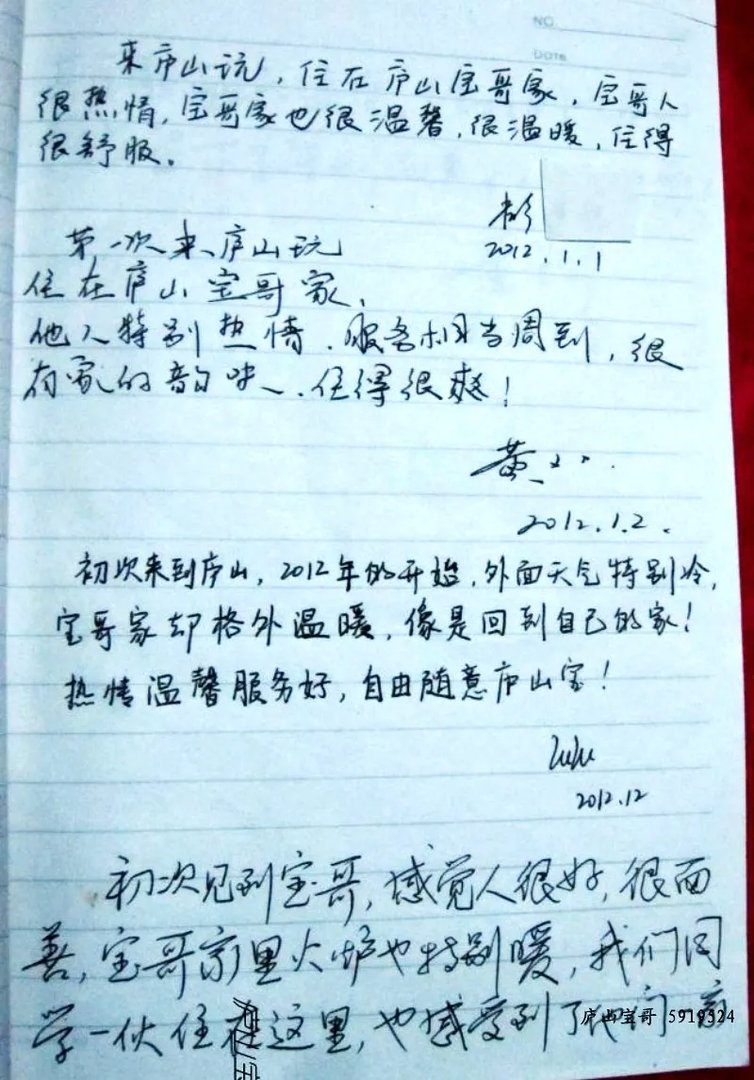 NO.
DATE
来庐山玩，住在庐山宝哥家，宝哥人
很热情，宝哥家也很温馨，很温暖，住得
很舒服。
彭
2012.1.1
第一次来庐山玩
住在庐山宝哥家，
他人特别热情．服务相当周到，很
有家的韵味．住得很爽！
黄
2012.1.2.
初次来到庐山，2012年的开始，外面天气特别冷，
宝哥家却格外温暖，像是回到自己的家！
热情温馨服务好，自由随意庐山宝！
lulu
2012.12
初次见到宝哥，感觉人很好，很面
善，宝哥家里火炉也特别暖，我们同
学一伙住在这里，也感受到了他们家
庐山宝哥 5919324